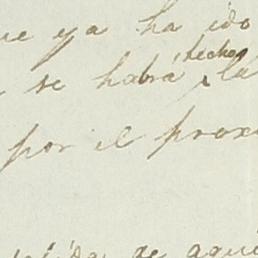 ue ya ha ido
se habrá hechos la
por el prox
de aqui